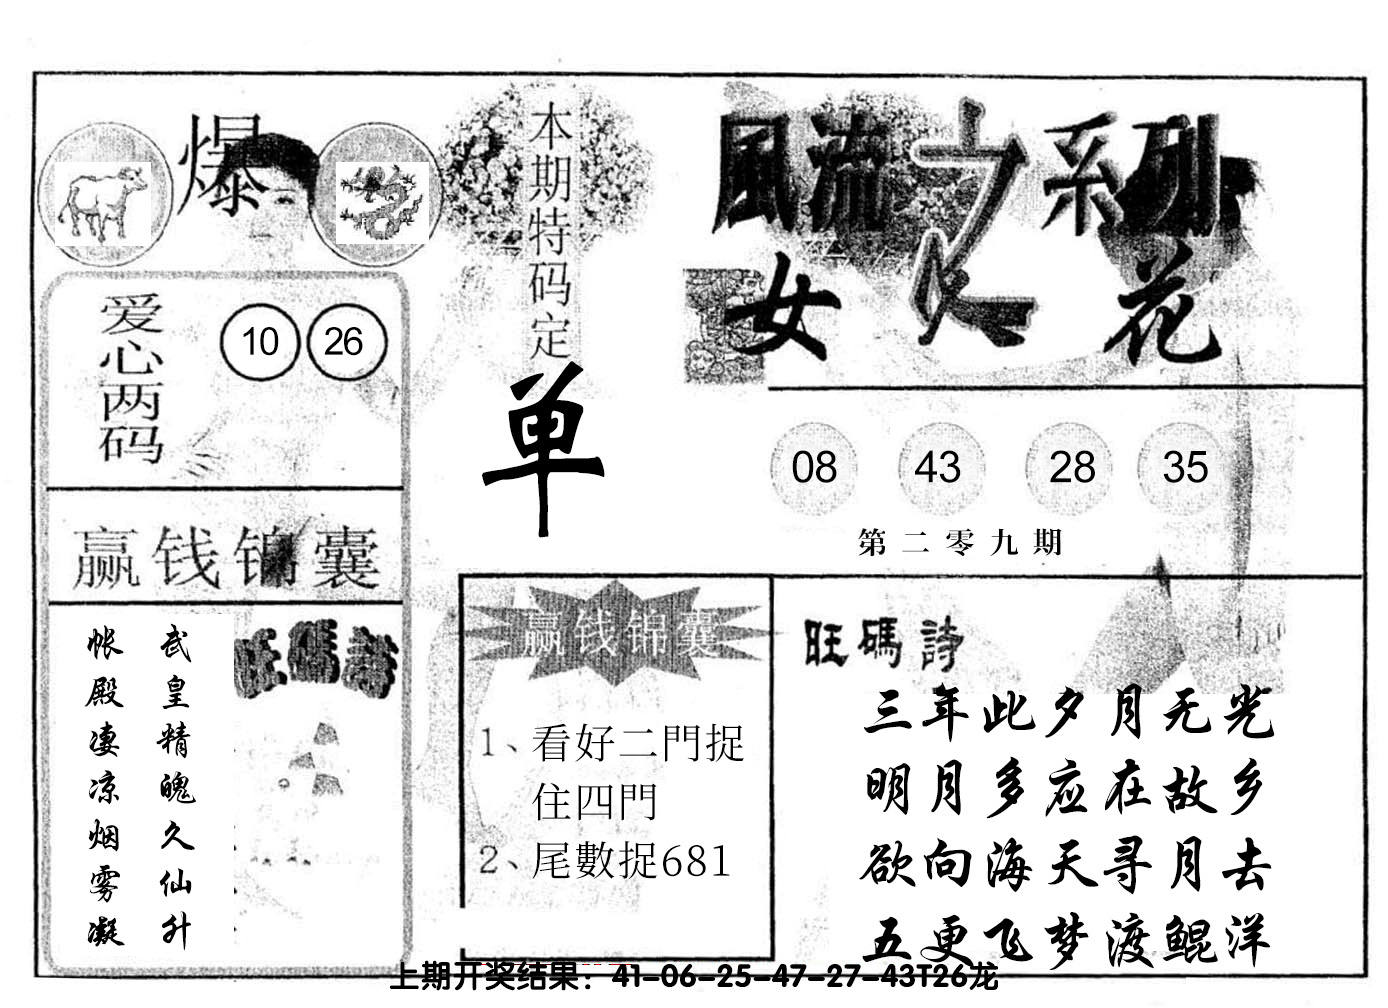 爆
本期特码定
单
風流之系列
女人花
爱心两码
10 26
08 43 28 35
第二零九期
赢钱锦囊
旺碼詩
武皇精魄久仙升
帐殿凄凉烟雾凝
赢钱锦囊
1、看好二門捉
住四門
2、尾數捉681
旺碼詩
三年此夕月无光
明月多应在故乡
欲向海天寻月去
五更飞梦渡鲲洋
上期开奖结果：41-06-25-47-27-43T26龙